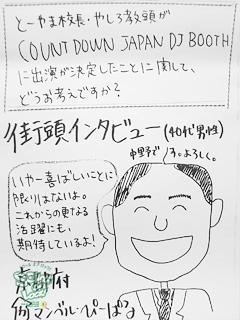 とーやま校長・やしろ教頭が
COUNT DOWN JAPAN DJ BOOTH
に出演が決定したことに関して、
どうお考えですか?
街頭インタビュー(40代男性)
中野です。よろしく。
いやー喜ばしいことに
限りはないよ。
これからの更なる
活躍にも、
期待しているよ!
京都府